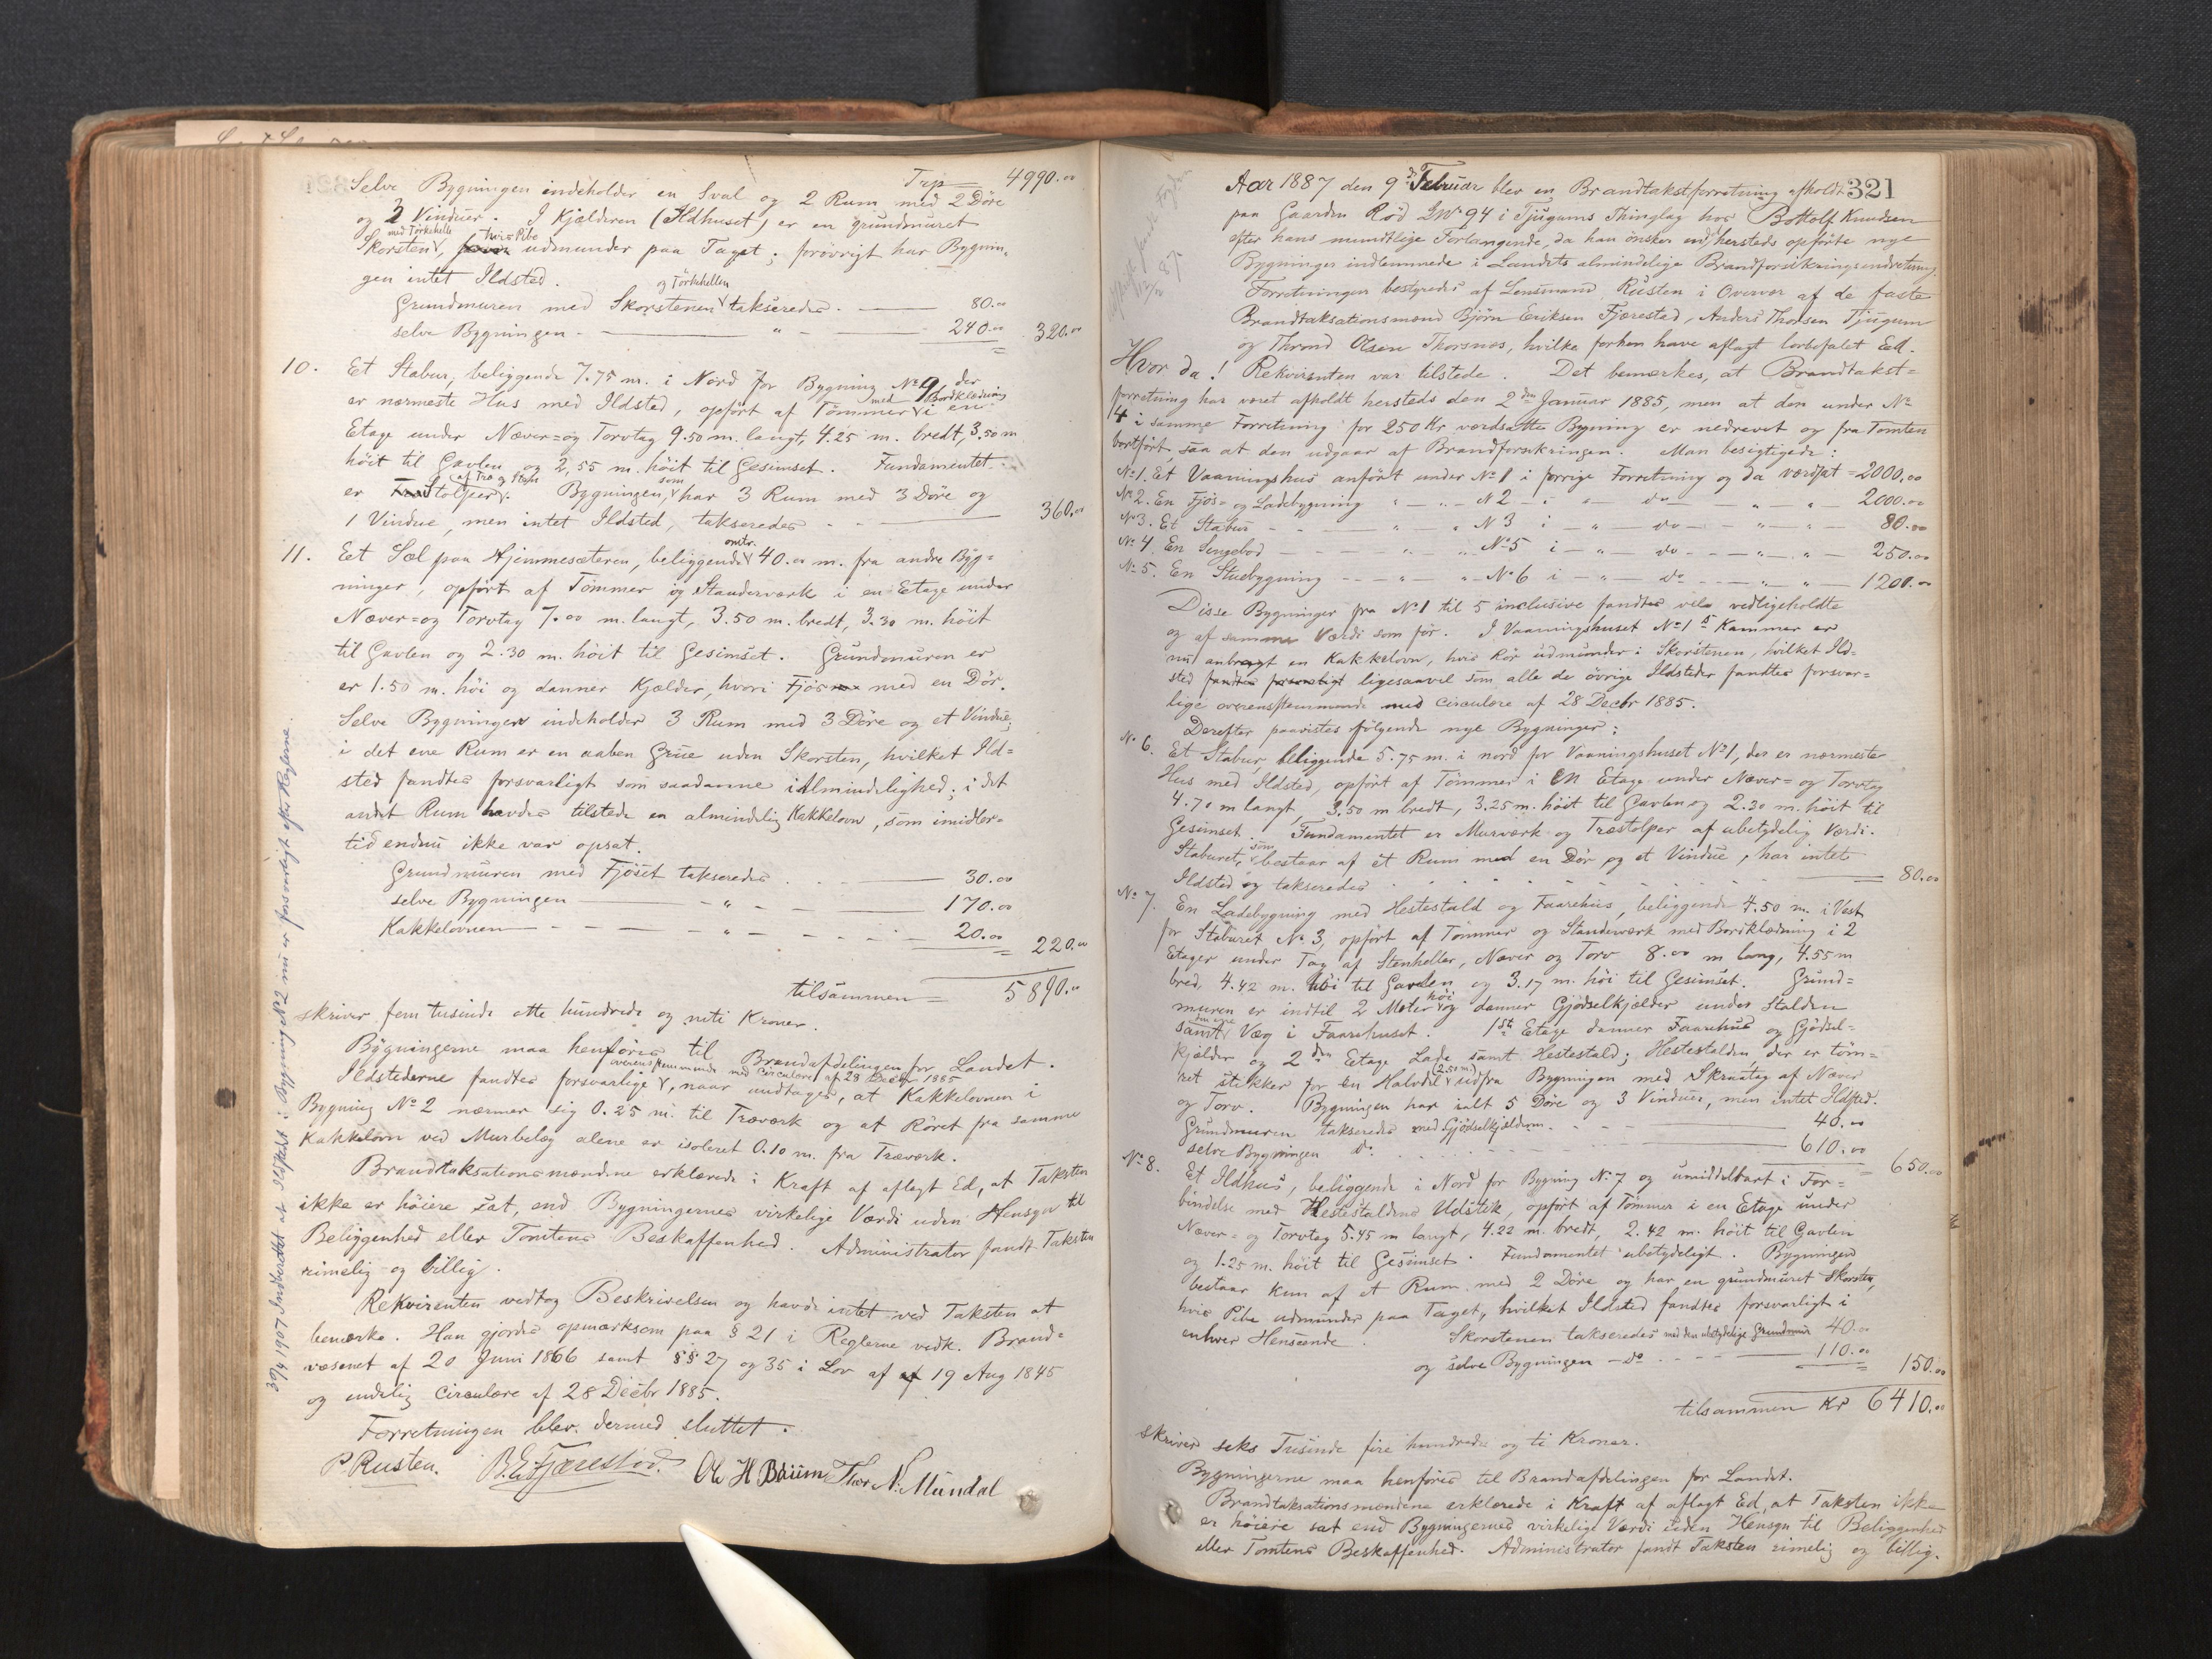 Trp 4990.00
Selve Bygningen indeholder en Sval og 2 Rum med 2 Døre
og 3 Vinduer. I Kjælderen (Ildhuset) er en grundmuret
med Törkehelle hvis Pibe
Skorsten, udmunder paa Taget; forövrigt har Bygnin-
gen intet Ildsted.
og Törkehellen
Grundmuren med Skorstenen takseredes. — 80.00
selve Bygningen — „ — 240.00 320.00
10. Et Stabur, beliggende 7.75 m. i Nord for Bygning No 9, der
er nærmeste Hus med Ildsted, opført af Tömmer med Bordklædning i en
Etage under Næver= og Torvtag 9.50 m. langt, 4.25 m. bredt, 3.50 m
höit til Gavlen og 2,55 m. höit til Gesimset. Fundamentet
er Stolper af Træ og Sten. Bygningen, som har 3 Rum med 3 Døre og
1 Vindue, men intet Ildsted, takseredes — 360.00
11. Et Sel paa Hjemmesæteren, beliggende omtr. 40.00 m. fra andre Byg=
ninger, opfört af Tömmer og Standerværk i en Etage under
Næver= og Torvtag 7.00 m. langt, 3.50 m. bredt, 3.30 m. höit
til Gavlen og 2.30 m. höit til Gesimset. Grundmuren er
er 1.50 m. höi og danner Kjælder, hvori Fjös med en Dör.
Selve Bygningen indeholder 3 Rum med 3 Döre og et Vindue;
i det ene Rum er en aaben Grue uden Skorsten, hvilket Ild=
sted fandtes forsvarligt som saadanne i Almindelighed; i det
andet Rum havdes tilstede en almindelig Kakkelovn, som imidler=
tid endnu ikke var opsat.
Grundmuren med Fjöset takseredes . — 30.00
selve Bygningen — „ — 170.00
Kakkelovnen — „ — 20.00 220.00
tilsammen = 5890.00
skriver fem tusinde otte hundrede og niti Kroner.
Bygningerne maa henföres til Brandafdelingen for Landet.
overensstemmende med Circulære af 28 Decbr 1885
Ildstederne fandtes forsvarlige, naar undtages, at Kakkelovnen i
Bygning No 2 nærmer sig 0.25 m. til Træværk og at Röret fra samme
Kakkelovn ved Murbelæg alene er isoleret 0.10 m. fra Træværk.
Brandtaksationsmændene erklærede i Kraft af aflagt Ed, at Taksten
ikke er höiere sat, end Bygningernes virkelige Værdi uden Hensyn til
Beliggenhed eller Tomtens Beskaffenhed. Administrator fandt Taksten
rimelig og billig.
Rekvirenten vedtog Beskrivelsen og havde intet ved Taksten at
bemærke. Han gjordes opmærksom paa § 21 i Reglerne vedk. Brand=
væsenet af 20 Juni 1866 samt §§ 27 og 35 i Lov af af 19 Aug 1845
og endelig Circulære af 28 Decbr 1885.
Forretningen blev dermed sluttet.
P. Rusten. B. E. Fjærestad. Ole H Böium Thor N. Mundal
30/4 1907 Indberettet at Ildstedet i Bygning No 2 nu er forsvarligt efter Reglerne.
321
Aar 1887 den 9de Februar blev en Brandtakstforretning afholdt
paa Gaarden Röd GNo 94 i Tjugums Thinglag hos Bottolf Knudsen
efter hans mundtlige Forlangende, da han önsker endel hersteds opförte nye
Bygninger indlemmede i Landets almindelige Brandforsikringsindretning.
Forretningen bestyredes af Lensmand Rusten i Overvær af de faste
Brandtaksationsmænd Björn Eriksen Fjærestad, Anders Thorsen Tjugum
og Thrond Olsen Thorsnes, hvilke forhen have aflagt lovbefalet Ed.
Hvor da! Rekvirenten var tilstede. Det bemærkes, at Brandtakst=
forretning har været afholdt hersteds den 2den Januar 1885, men at den under No
4 i samme Forretning for 250 Kr værdsatte Bygning er nedrevet og fra Tomten
bortfört, saa at den udgaar af Brandforsikringen. Man besigtigede:
No 1. Et Vaaningshus anfört under No 1 i forrige Forretning og da værdsat = 2000.00
No 2. En Fjös= og Ladebygning „ — „ No 2 i „ do — „ „ — 2000.00
No 3. Et Stabur „ „ No 3 i — „ do — „ — „ — 80.00
No 4. En Sengebod — „ — „ No 5 i — „ do — „ — „ — 250.00
No 5. En Stuebygning — „ — „ No 6 i — „ — do — „ — „ — 1200.00
Disse Bygninger fra No 1 til 5 inclusive fandtes vel vedligeholdte
og af samme Værdi som för. I Vaaningshuset No 1s Kammer er
nu anbragt en Kakkelovn, hvis Rör udmunder i Skorstenen, hvilket Ild=
sted fandtes forsvarligt ligesaavel som alle de övrige Ildsteder fandtes forsvar=
lige overensstemmende med Circulære af 28 Decbr 1885.
Derefter paavistes fölgende nye Bygninger:
No 6. Et Stabur, beliggende 5.75 m. i nord for Vaaningshuset No 1, der er nærmeste
Hus med Ildsted, opfört af Tömmer i en Etage under Næver= og Torvtag
4.70 m langt, 3.50 m bredt, 3.25 m. höit til Gavlen og 2.30 m. höit til
Gesimset. Fundamentet er Murværk og Træstolper af ubetydelig Værdi.
Staburet, som bestaar af et Rum med en Dör og et Vindue, har intet
Ildsted og takseredes — 80.00
No 7. En Ladebygning med Hestestald og Faarehus, beliggende 4.50 m. i Vest
for Staburet No 3, opfört af Tömmer og Standerværk med Bordklædning i 2
Etager under Tag af Stenheller, Næver og Torv 8.00 m lang, 4.55 m
bred, 4.42 m. höi til Gavlen og 3.17 m. höi til Gesimset. Grund=
muren er indtil 2 Meter höi og danner Gjödselkjælder under Stalden
samt den ene Væg i Faarehuset. 1ste Etage danner Faarehus og Gjödsel=
kjælder og 2den Etage Lade samt Hestestald; Hestestalden, der er töm=
ret stikker for en Halvdel (2.50 m) udfra Bygningen med Skraatag af Næver
og Torv. Bygningen har ialt 5 Döre og 3 Vinduer, men intet Ildsted.
Grundmuren takseredes med Gjödselkjælderen. — 40.00
selve Bygningen do — 610.00 650.00
No 8. Et Ildhus, beliggende i Nord for Bygning No 7 og umiddelbart i For=
bindelse med Hestestaldens Udstik, opfört af Tömmer i en Etage under
Næver= og Torvtag 5.45 m langt, 4.22 m. bredt, 2.42 m. höit til Gavlen
og 1.25 m. höit til Gesimset. Fundamentet ubetydeligt. Bygningen
bestaar kun af et Rum med 2 Döre og har en grundmuret Skorsten,
hvis Pibe udmunder paa Taget, hvilket Ildsted fandtes forsvarligt i
enhver Henseende. Skorstenen takseredes med den ubetydelige Grundmur 40.00
og selve Bygningen — do — 110.00 150.00
tilsammen Kr 6410.00
skriver seks Tusinde fire hundrede og ti Kroner.
Bygningerne maa henföres til Brandafdelingen for Landet.
Brandtaksationsmændene erklærede i Kraft af aflagt Ed, at Taksten ikke
er höiere sat end Bygningernes virkelige Værdi uden Hensyn til Beliggenhed
eller Tomtens Beskaffenhed. Administrator fandt Taksten rimelig og billig.